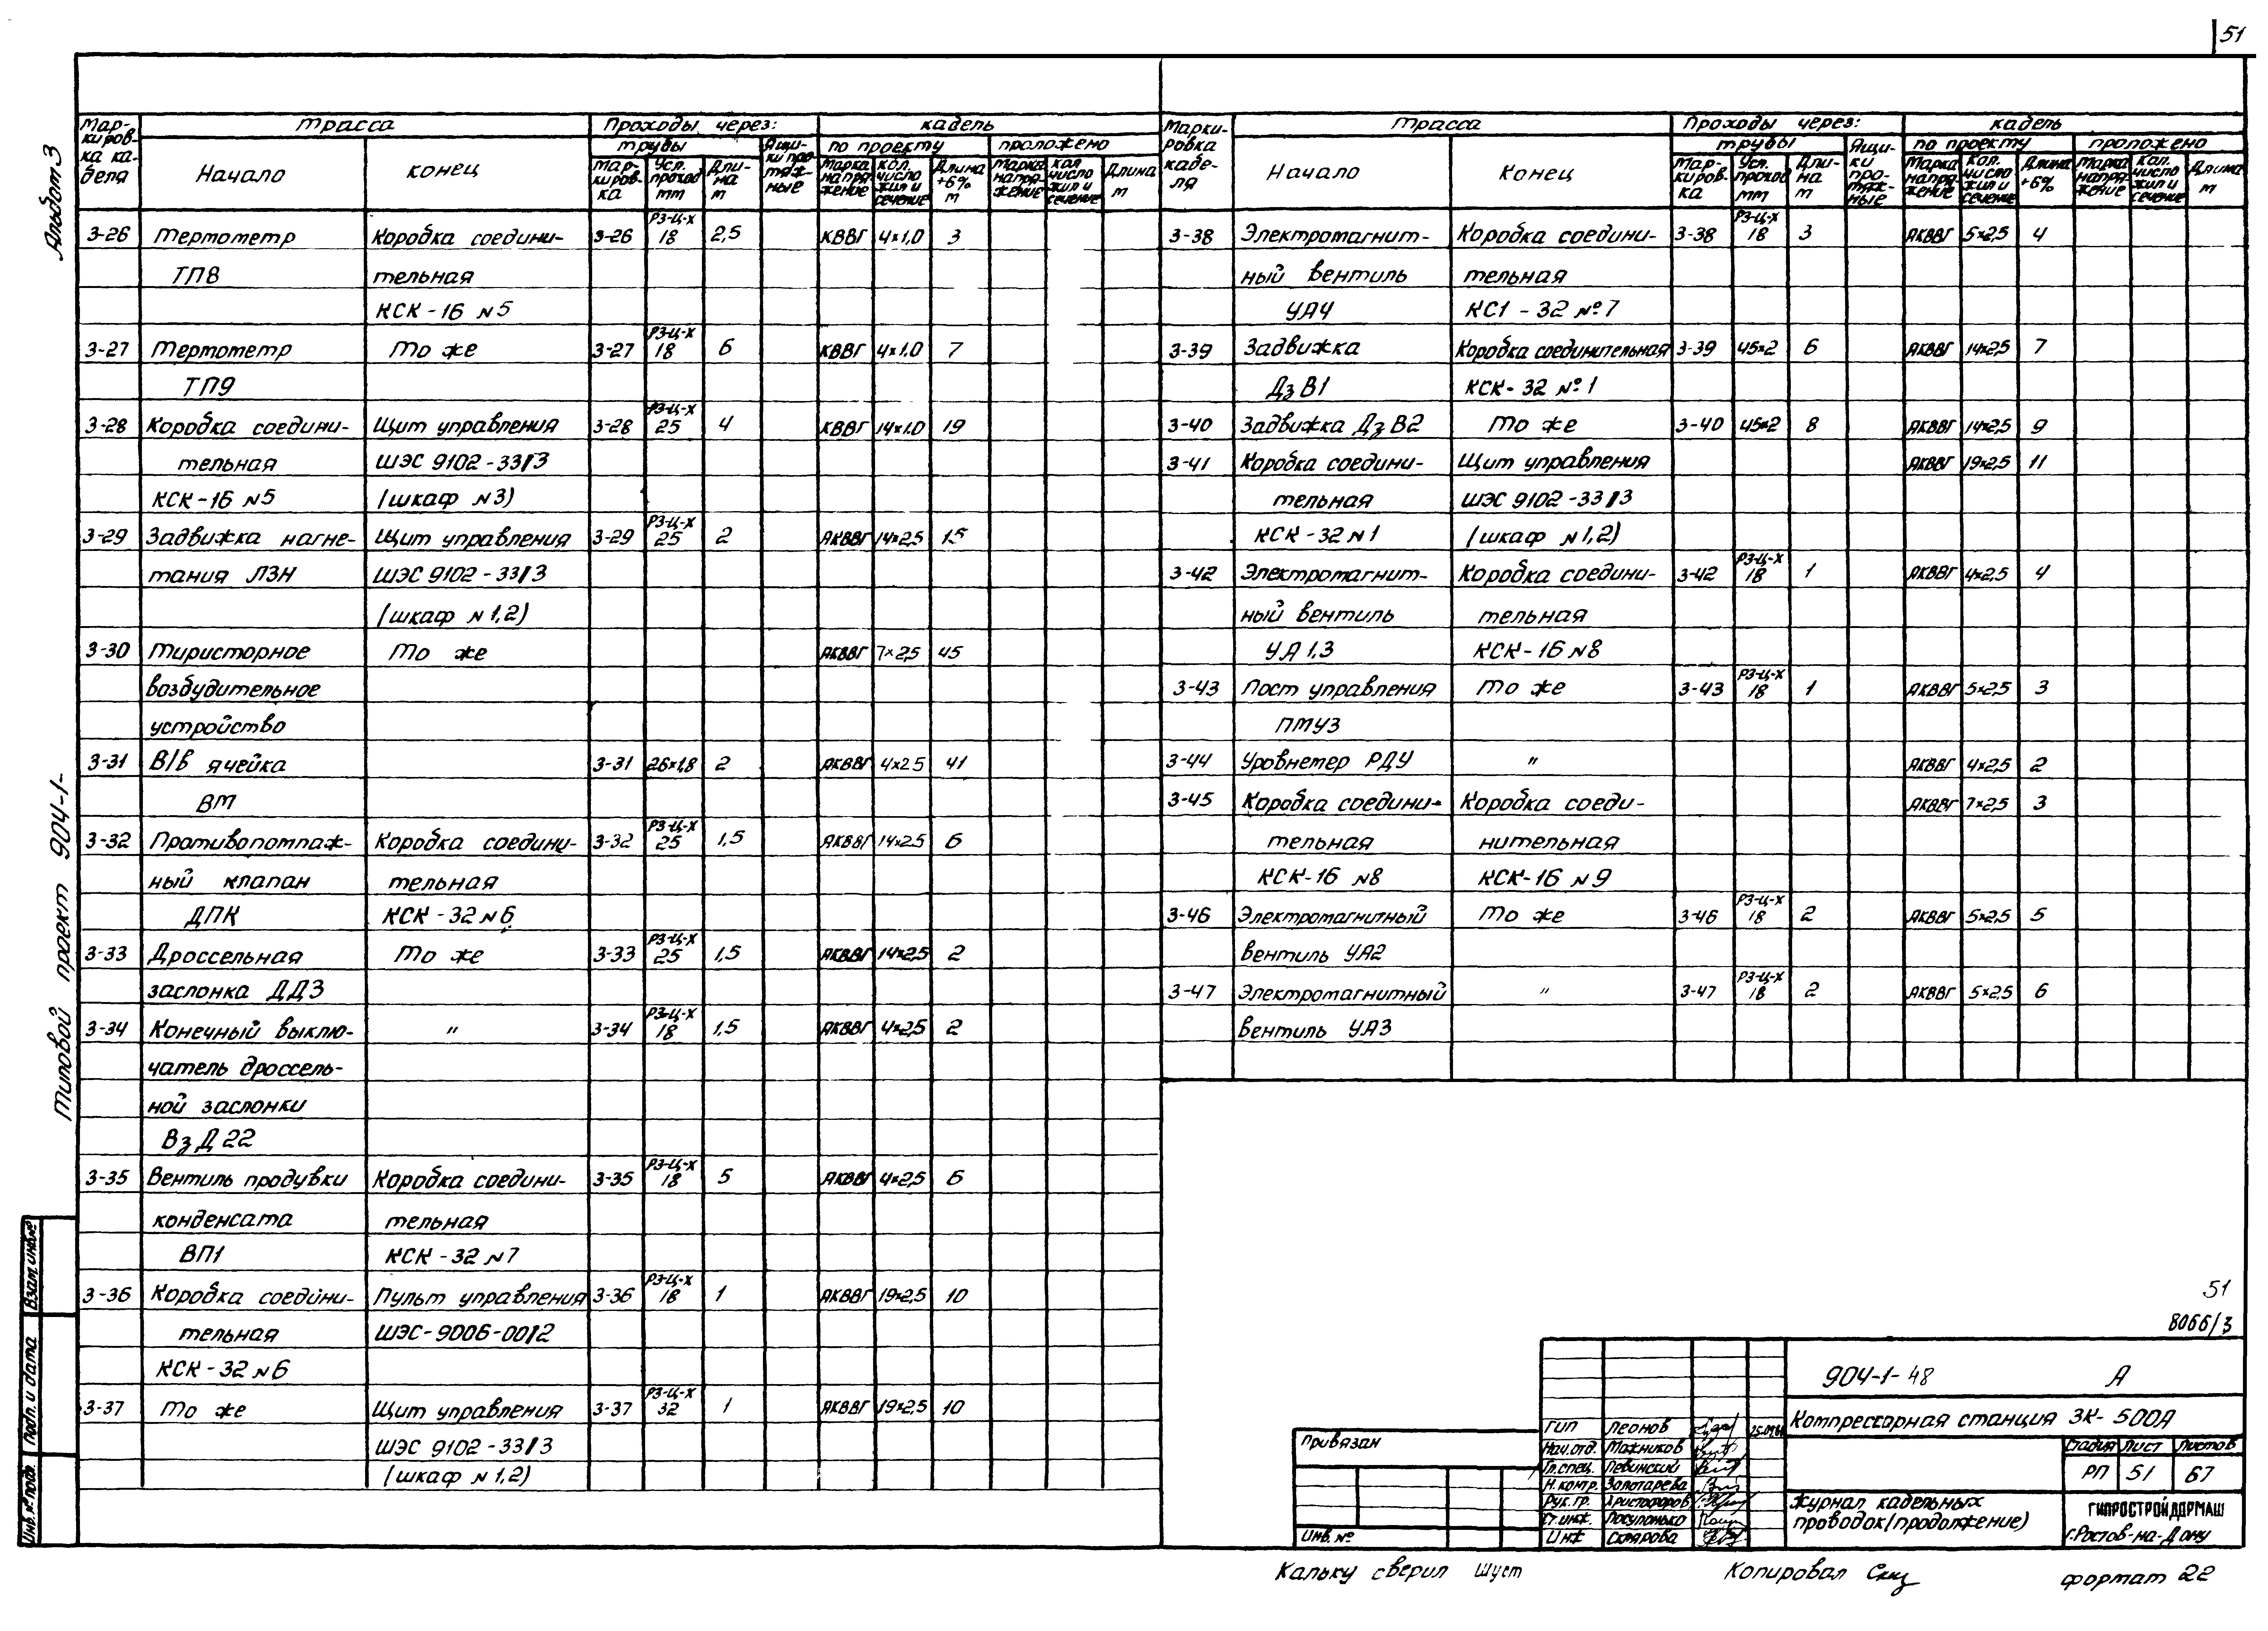 51
Альбом 3
Типовой проект 904-1-
Взам. инв.№
Подп. и дата
Инв.№ подп.
Маркировка кабеля
трасса
Проходы через:
кабель
Начало
конец
трубы
Ящики протяжные
по проекту
проложено
Маркировка
Усл. проход мм
Длина м
Марка напряжение
кол. число жил и сечение
Длина +6% м
Марка напряжение
кол. число жил и сечение
Длина м
3-26 Термометр Коробка соедини- 3-26 РЗ-Ц-Х 18 2,5 КВВГ 4×1,0 3
ТП8 тельная
КСК-16 №5
3-27 Термометр То же 3-27 РЗ-Ц-Х 18 6 КВВГ 4×1.0 7
ТП9
3-28 Коробка соедини- Щит управления 3-28 РЗ-Ц-Х 25 4 КВВГ 14×1.0 19
тельная ШЭС 9102-33/3
КСК-16 №5 (шкаф №3)
3-29 Задвижка нагне- Щит управления 3-29 РЗ-Ц-Х 25 2 АКВВГ 14×2,5 15
тания ЛЗН ШЭС 9102-33/3
(шкаф №1,2)
3-30 Тиристорное То же АКВВГ 7×2,5 45
возбудительное
устройство
3-31 В/в ячейка 3-31 26×1,8 2 АКВВГ 4×2.5 41
ВМ
3-32 Противопомпаж- Коробка соедини- 3-32 РЗ-Ц-Х 25 1,5 АКВВГ 14×2.5 6
ный клапан тельная
ДПК КСК-32 №6
3-33 Дроссельная То же 3-33 РЗ-Ц-Х 25 1,5 АКВВГ 14×2,5 2
заслонка ДДЗ
3-34 Конечный выклю- " 3-34 РЗ-Ц-Х 18 1,5 АКВВГ 4×2,5 2
чатель дроссель-
ной заслонки
ВзД22
3-35 Вентиль продувки Коробка соедини- 3-35 РЗ-Ц-Х 18 5 АКВВГ 4×2,5 6
конденсата тельная
ВП1 КСК-32 №7
3-36 Коробка соедини- Пульт управления 3-36 РЗ-Ц-Х 18 1 АКВВГ 19×2,5 10
тельная ШЭС-9006-00/2
КСК-32 №6
3-37 То же Щит управления 3-37 РЗ-Ц-Х 32 1 АКВВГ 19×2,5 10
ШЭС 9102-33/3
(шкаф №1,2)
Маркировка кабеля
трасса
Проходы через:
кабель
Начало
Конец
трубы
Ящики протяжные
по проекту
проложено
Маркировка
Усл. проход мм
Длина м
Марка напряжение
Кол. число жил и сечение
Длина +6%
Марка напряжение
Кол. число жил и сечение
Длина м
3-38 Электромагнит- Коробка соедини- 3-38 РЗ-Ц-Х 18 3 АКВВГ 5×2,5 4
ный вентиль тельная
УА4 КС1-32 №7
3-39 Задвижка Коробка соединительная 3-39 45×2 6 АКВВГ 14×2,5 7
ДзВ1 КСК-32 №1
3-40 Задвижка ДзВ2 То же 3-40 45×2 8 АКВВГ 14×2,5 9
3-41 Коробка соедини- Щит управления АКВВГ 19×2,5 11
тельная ШЭС 9102-33/3
КСК-32 №1 (шкаф №1,2)
3-42 Электромагнит- Коробка соедини- 3-42 РЗ-Ц-Х 18 1 АКВВГ 4×2,5 4
ный вентиль тельная
УА 1,3 КСК-16 №8
3-43 Пост управления То же 3-43 РЗ-Ц-Х 18 1 АКВВГ 5×2,5 3
ПМУЗ
3-44 Уровнемер РДУ " АКВВГ 4×2,5 2
3-45 Коробка соедини- Коробка соеди- АКВВГ 7×2,5 3
тельная нительная
КСК-16 №8 КСК-16 №9
3-46 Электромагнитный То же 3-46 РЗ-Ц-Х 18 2 АКВВГ 5×2,5 5
вентиль УА2
3-47 Электромагнитный " 3-47 РЗ-Ц-Х 18 2 АКВВГ 5×2,5 6
вентиль УА3
51
8066/3
904-1-48 А
Компрессорная станция 3К-500А
Стадия Лист Листов
РП 51 67
Журнал кабельных
проводок (продолжение)
ГИПРОСТРОЙДОРМАШ
г.Ростов-на-Дону
ГИП Леонов
Нач.отд. Мажников
Гл.спец. Левинский
Н.контр. Золотарева
Рук.гр. Христофоров
Ст.инж.
Инж Склярова
Привязан
Инв.№
Кальку сверил Шуст
Копировал
формат 22